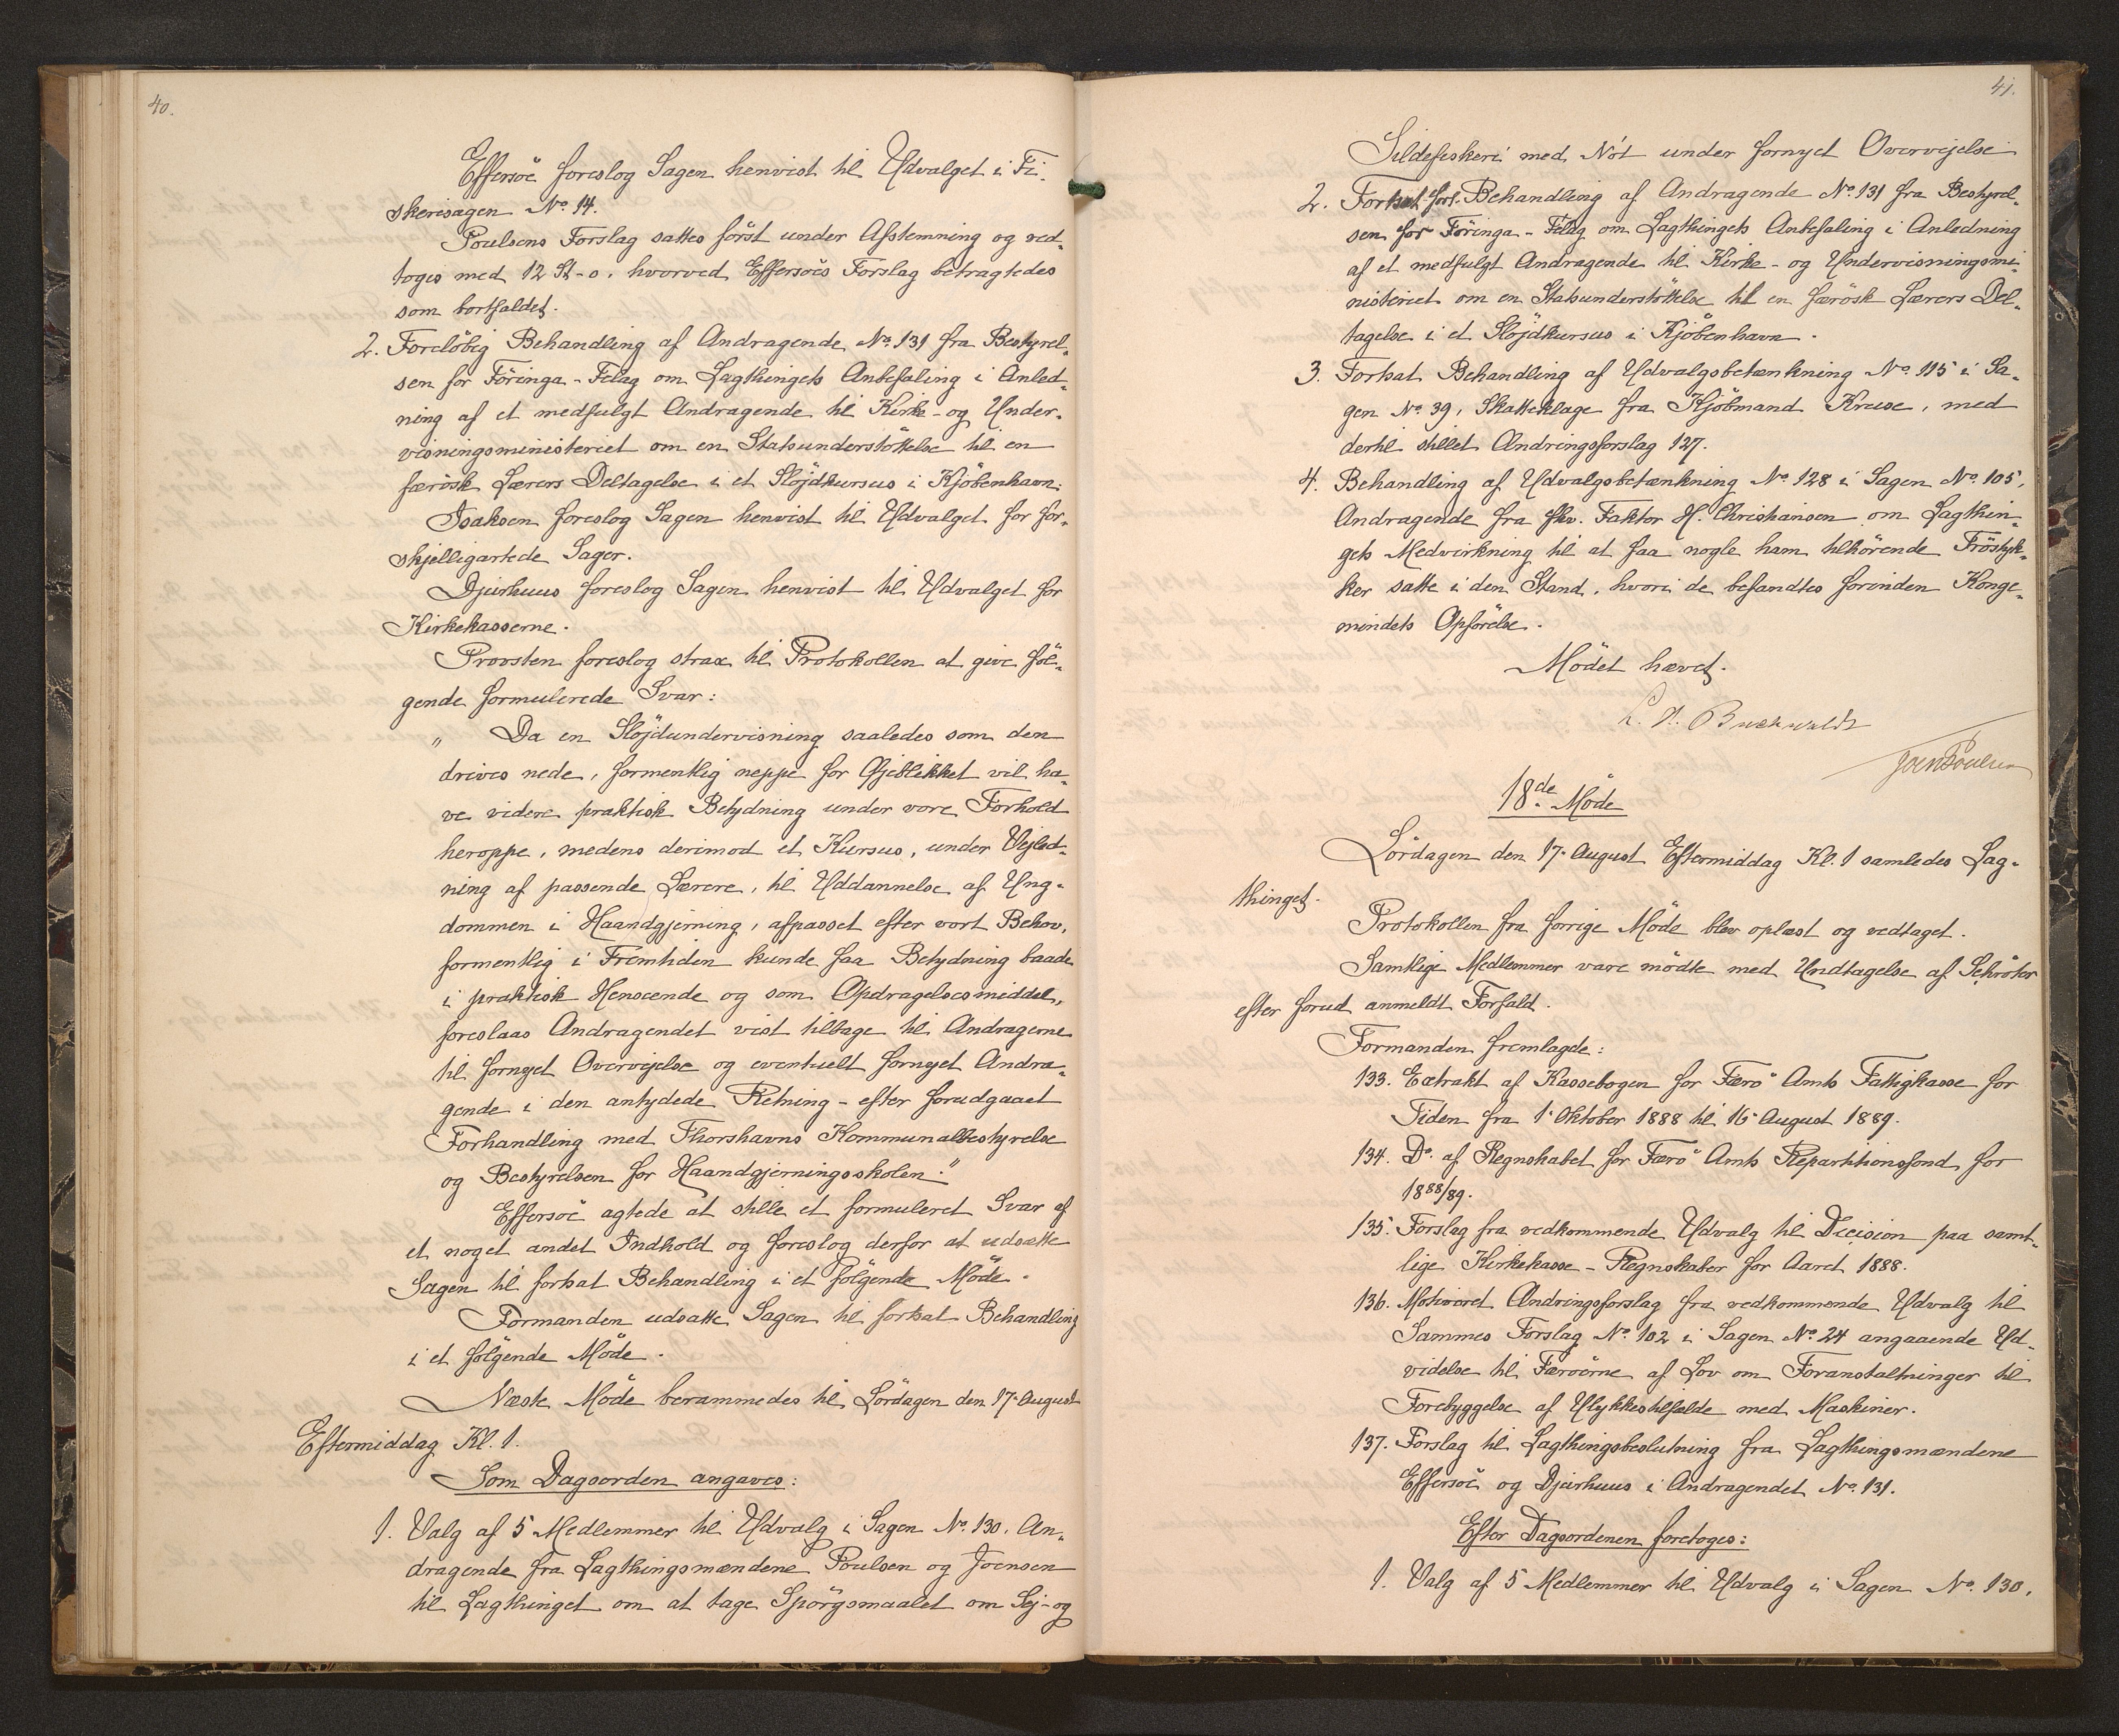 40.
Effersöe foreslog Sagen henvist til Udvalget i Fi-
skerisagen No. 14.
Poulsens Forslag sattes först under Afstemning og ved-
toges med 12 St-0, hvorved Effersöes Forslag betragtedes
som bortfaldet.
2. Forelöbig Behandling af Andragende No. 131 fra Bestyrel-
sen for Föringa-Felag om Lagthingets Anbefaling i Anled-
ning af et medfulgt Andragende til Kirke- og Under-
visningsministeriet om en Statsunderstöttelse til en
færösk Lærers Deltagelse i et Slöjdkursus i Kjöbenhavn.
Isaksen foreslog Sagen henvist til Udvalget for for-
skjelligartede Sager.
Djurhuus foreslog Sagen henvist til Udvalget for
Kirkekasserne.
Provsten foreslog strax til Protokollen at give föl-
gende formulerede Svar:
„ Da en Slöjdundervisning saaledes som den
drives nede, formentlig neppe for Øjeblikket vil ha-
ve videre praktisk Betydning under vore Forhold
heroppe, medens derimod et Kursus, under Vejled-
ning af passende Lærere, til Uddannelse af Ung-
dommen i Haandgjerning, afpasset efter vort Behov,
formentlig i Fremtiden kunde faa Betydning baade
i praktisk Henseende og som Opdragelsesmiddel,
foreslaas Andragendet vist tilbage til Andragerne
til fornyet Overvejelse og eventuelt fornyet Andra-
gende i den antydede Retning - efter forudgaaet
Forhandling med Thorshavns Kommunalbestyrelse
og Bestyrelsen for Haandgjerningsskolen."
Effersöe agtede at stille et formuleret Svar af
et noget andet Indhold og foreslog derfor at udsætte
Sagen til fortsat Behandling i et fölgende Möde.
Formanden udsatte Sagen til fortsat Behandling
i et fölgende Möde.
Næste Möde berammedes til Lördagen den 17. August
Eftermiddag Kl. 1.
Som Dagsorden angaves:
1. Valg af 5 Medlemmer til Udvalg i Sagen No. 130, An-
dragende fra Lagthingsmændene Poulsen og Joensen
til Lagthinget om at tage Spörgsmaalet om Sej- og
41.
Sildefiskeri med Not under fornyet Overvejelse
2. Fortsat forl. Behandling af Andragende No. 131 fra Bestyrel-
sen for Föringa-Felag om Lagthingets Anbefaling i Anledning
af et medfulgt Andragende til Kirke- og Undervisningsmi-
nisteriet om en Statsunderstöttelse til en færösk Lærers Del-
tagelse i et Slöjdkursus i Kjöbenhavn.
3. Fortsat Behandling af Udvalgsbetænkning No. 115 i Sa-
gen No. 39, Skatteklage fra Kjöbmand Kruse, med
dertil stillet Ændringsforslag 127.
4. Behandling af Udvalgsbetænkning No. 128 i Sagen No. 105,
Andragende fra fhv. Faktor H. Christiansen om Lagthin-
gets Medvirkning til at faa nogle ham tilhörende Tröstyk-
ker satte i den Stand, hvori de befandtes forinden Konge-
mindets Opförelse.
Mödet hævet.
L. N. Buchwaldt
Joen Poulsen
18de Möde
Lördagen den 17. August Eftermiddag Kl. 1 samledes Lag-
thinget.
Protokollen fra forrige Möde blev oplæst og vedtaget.
Samtlige Medlemmer vare mödte med Undtagelse af Schröter
efter forud anmeldt Forfald.
Formanden fremlagde:
133. Extrakt af Kassebogen for Færö Amts Fattigkasse for
Tiden fra 1. Oktober 1888 til 16. August 1889.
134. Do. af Regnskabet for Færö Amts Repartitionsfond for
1888/89.
135. Forslag fra vedkommende Udvalg til Decision paa samt-
lige Kirkekasse-Regnskaber for Aaret 1888.
136. Motiveret Ændringsforslag fra vedkommende Udvalg til
Sammes Forslag No. 102 i Sagen No. 24 angaaende Ud-
videlse til Færöerne af Lov om Foranstaltninger til
Forebyggelse af Ulykkestilfælde med Maskiner.
137. Forslag til Lagthingsbeslutning fra Lagthingsmændene
Effersöe og Djurhuus i Andragendet No. 131.
Efter Dagsordenen foretoges:
1. Valg af 5 Medlemmer til Udvalg i Sagen No. 130,